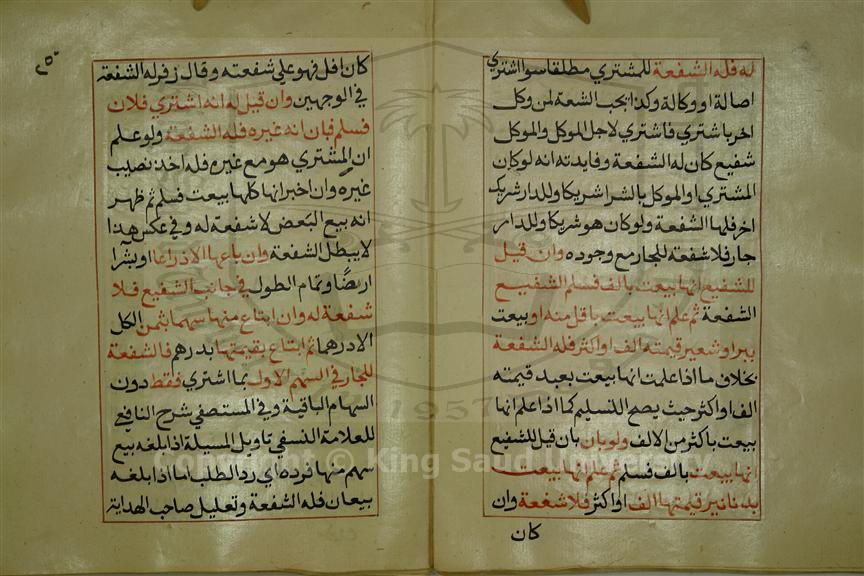 له فله الشفعة للمشتري مطلقا سوا اشتري
اصالة او وكالة وكذا يجب الشعة لمن وكل
اخر باشتري فاشتري لاجل الموكل والموكل
شفيع كان له الشفعة وفايدته انه لو كان
المشتري او الموكل بالشرا شريكا وللدار شريك
اخر فلها الشفعة ولو كان هو شريكا وللدار
جار فلا شفعة للجار مع وجوده وان قيل
للشفيع انها بيعت بالف فسلم الشفيع
الشفعة ثم علم انها بيعت باقل منه او بيعت
ببر او شعير قيمته الف او اكثر فله الشفعة
بخلاف ما اذا علمت انها بيعت بعبد قيمته
الف او اكثر حيث يصح التسليم كما اذا علم انها
بيعت باكثر من الالف ولو بان بان قيل للشفيع
انها بيعت بالف فسلم ثم علم انها بيعت
بدنانير قيمتها الف او اكثر فلا شفعة وان
كان
كان اقل فهو علي شفعته وقال زفر له الشفعة
في الوجهين وان قيل له انه اشتري فلان
فسلم فبان انه غيره فله الشفعة ولو علم
ان المشتري هو مع غيره فله اخذ نصيب
غيره وان اخبر انها كلها بيعت فسلم ثم ظهر
انه بيع البعض لا شفعة له وفي عكس هذا
لا يبطل الشفعة وان باعها الا ذراعا او بشرا
ارضا وتمام الطول في جانب الشفيع فلا
شفعة له وان ابتاع منها سهما بثمن الكل
الا درهما ثم ابتاع بقيمتها بدرهم فالشفعة
للجار في السهم الاول بما اشتري فقط دون
السهام الباقية وفي المستصفي شرح النافع
للعلامة النسفي تاويل المسيلة اذا بلغه بيع
سهم منها فرده اي رد الطلب اما اذا بلغه
بيعان فله الشفعة وتعليل صاحب الهداية
1957
Copyright © King Saud University